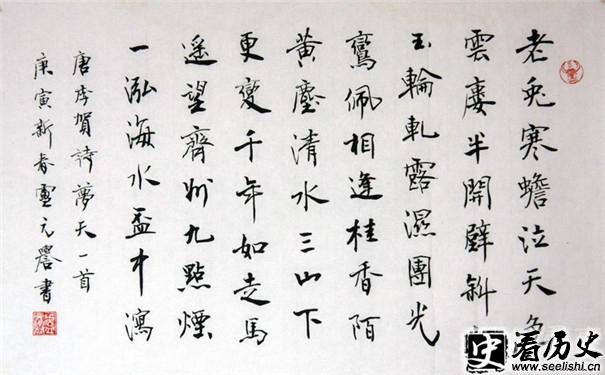 老兔寒蟾泣天色
雲廔半開壁斜
玉輪軋露濕團光
鸞佩相逢桂香陌
黃塵清水三山下
更變千年如走馬
遙望齊州九點煙
一泓海水盃中瀉
唐李賀詩夢天一首
庚寅新春元書
史看历史
www.seelishi.cn